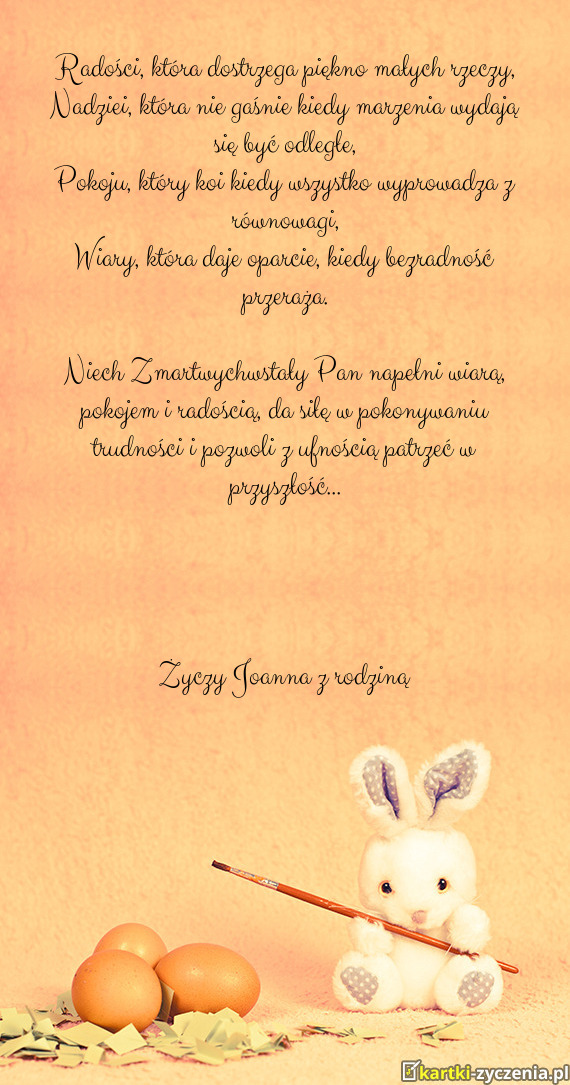 Radości, która dostrzega piękno małych rzeczy,
Nadziei, która nie gaśnie kiedy marzenia wydają
się być odległe,
Pokoju, który koi kiedy wszystko wyprowadza z
równowagi,
Wiary, która daje oparcie, kiedy bezradność
przeraża.
Niech Zmartwychwstały Pan napełni wiarą,
pokojem i radością, da siłę w pokonywaniu
trudności i pozwoli z ufnością patrzeć w
przyszłość...
Życzy Joanna z rodziną
kartki-zyczenia.pl